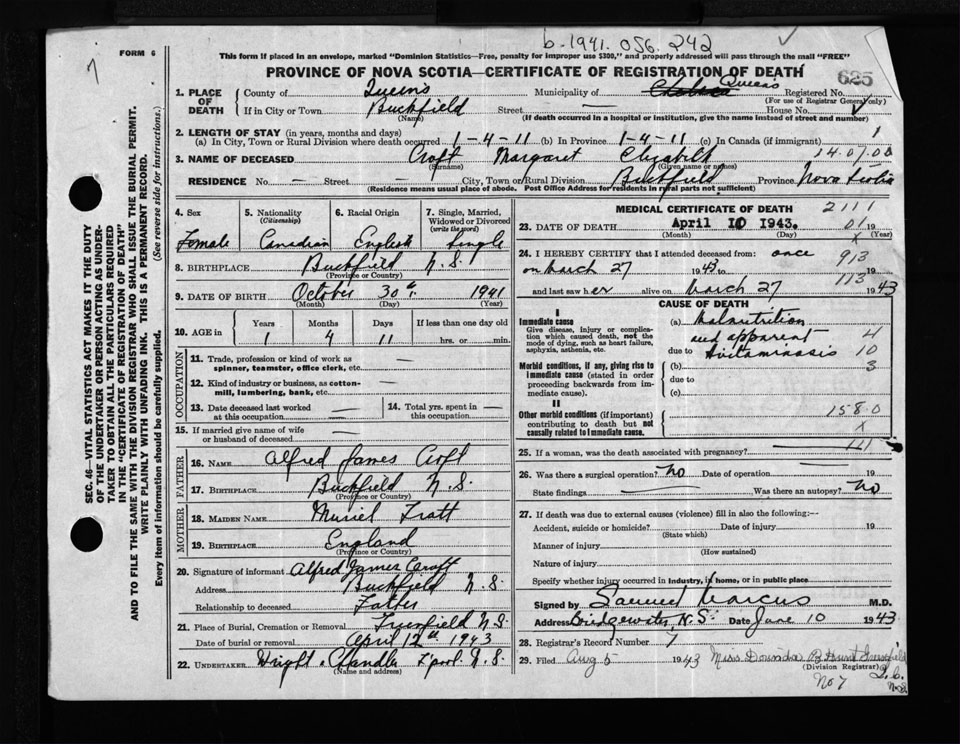 b-1941. 056. 242
FORM 6
7
This form if placed in an envelope, marked "Dominion Statistics—Free, penalty for improper use $300," and properly addressed will pass through the mail "FREE"
PROVINCE OF NOVA SCOTIA—CERTIFICATE OF REGISTRATION OF DEATH
625
1. PLACE OF DEATH
County of Queens Municipality of Queens Registered No.
(For use of Registrar General only)
If in City or Town Buckfield Street — House No.
(Name) (If death occurred in a hospital or institution, give the name instead of street and number)
2. LENGTH OF STAY (in years, months and days)
(a) In City, Town or Rural Division where death occurred 1-4-11 (b) In Province 1-4-11 (c) In Canada (if immigrant) 1
3. NAME OF DECEASED Croft Margaret Elizabeth 14.07.00
(Surname) (Given name or names)
RESIDENCE No. — Street — City, Town or Rural Division Buckfield Province Nova Scotia
(Residence means usual place of abode. Post Office Address for residents in rural parts not sufficient)
SEC. 46—VITAL STATISTICS ACT MAKES IT THE DUTY
OF THE UNDERTAKER OR PERSON ACTING AS UNDER-
TAKER TO OBTAIN ALL THE PARTICULARS REQUIRED
IN THE "CERTIFICATE OF REGISTRATION OF DEATH"
AND TO FILE THE SAME WITH THE DIVISION REGISTRAR WHO SHALL ISSUE THE BURIAL PERMIT.
WRITE PLAINLY WITH UNFADING INK. THIS IS A PERMANENT RECORD.
Every item of information should be carefully supplied. (See reverse side for instructions.)
4. Sex
Female
5. Nationality
(Citizenship)
Canadian
6. Racial Origin
English
7. Single, Married,
Widowed or Divorced
(write the word)
Single
8. BIRTHPLACE Buckfield N.S.
(Province or Country)
9. DATE OF BIRTH October 30th 1941
(Month) (Day) (Year)
10. AGE in
Years Months Days If less than one day old
1 4 11 hrs. or min.
OCCUPATION
11. Trade, profession or kind of work as
spinner, teamster, office clerk, etc. —
12. Kind of industry or business, as cotton-
mill, lumbering, bank, etc. —
13. Date deceased last worked
at this occupation —
14. Total yrs. spent in
this occupation —
15. If married give name of wife
or husband of deceased —
FATHER
16. NAME Alfred James Croft
17. BIRTHPLACE Buckfield N.S.
(Province or Country)
MOTHER
18. MAIDEN NAME Muriel Tratt
19. BIRTHPLACE England
(Province or Country)
20. Signature of informant Alfred James Croft
Address Buckfield N.S.
Relationship to deceased Father
21. Place of Burial, Cremation or Removal N.S.
Date of burial or removal April 12th 1943
22. UNDERTAKER Wright & Chandler N.S.
(Name and address)
MEDICAL CERTIFICATE OF DEATH 2111
23. DATE OF DEATH April 10 1943. 01 19
(Month) (Day) (Year)
X
24. I HEREBY CERTIFY that I attended deceased from: once 913
on March 27 1943 to 113 19
and last saw her alive on March 27 1943
CAUSE OF DEATH
I
Immediate cause
Give disease, injury or complica-
tion which caused death, not the
mode of dying, such as heart failure,
asphyxia, asthenia, etc.
(a) Malnutrition
and apparent 4
due to Avitaminosis 10
Morbid conditions, if any, giving rise to
immediate cause (stated in order
proceeding backwards from im-
mediate cause).
(b) 3
due to
(c)
II
Other morbid conditions (if important)
contributing to death but not
causally related to immediate cause.
1580
X
25. If a woman, was the death associated with pregnancy? 111
26. Was there a surgical operation? No Date of operation 19
State findings — Was there an autopsy? No
27. If death was due to external causes (violence) fill in also the following:—
Accident, suicide or homicide? Date of injury 19
(State which)
Manner of injury
(How sustained)
Nature of injury
Specify whether injury occurred in industry, in home, or in public place
Signed by Samuel Marcus M.D.
Address Bridgewater, N.S. Date June 10 1943
28. Registrar's Record Number 7
29. Filed Aug 5 1943 Miss
(Division Registrar)
No 7